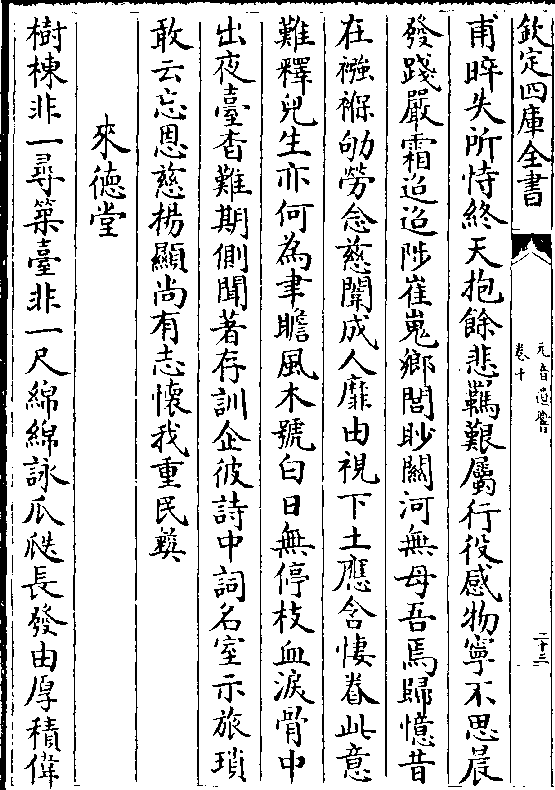 欽定四庫全書
元音遺響
卷十
二十三
甫晬失所恃終天抱餘悲羈艱屬行役感物寧不思晨
發踐嚴霜迢迢陟崔嵬鄉閭眇關河無母吾焉歸憶昔
在襁褓劬勞念慈闈成人靡由視下土應含悽眷此意
難釋兒生亦何為聿瞻風木號白日無停枝血淚骨中
出夜臺杳難期側聞著存訓企彼詩中詞名室示旅瑣
敢云忘恩慈揚顯尚有志懷我重民彝
來德堂
樹棟非一尋築臺非一尺綿綿詠瓜瓞長發由厚積偉